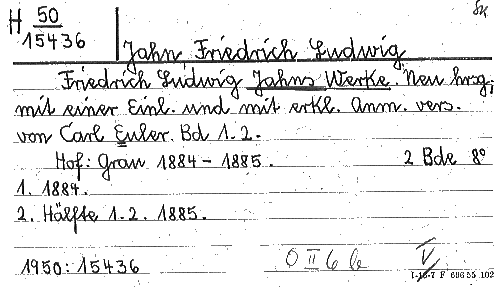 H 50
15436
Jahn Friedrich Ludwig
Friedrich Ludwig Jahns Werke. Neu hrsg.
mit einer Einl. und mit erkl. Anm. vers.
von Carl Euler. Bd 1-2.
Hof: Grau 1884-1885. 2 Bde 8º
1. 1884.
2. Hälfte 1.2. 1885.
1950: 15436 O II 6 b V